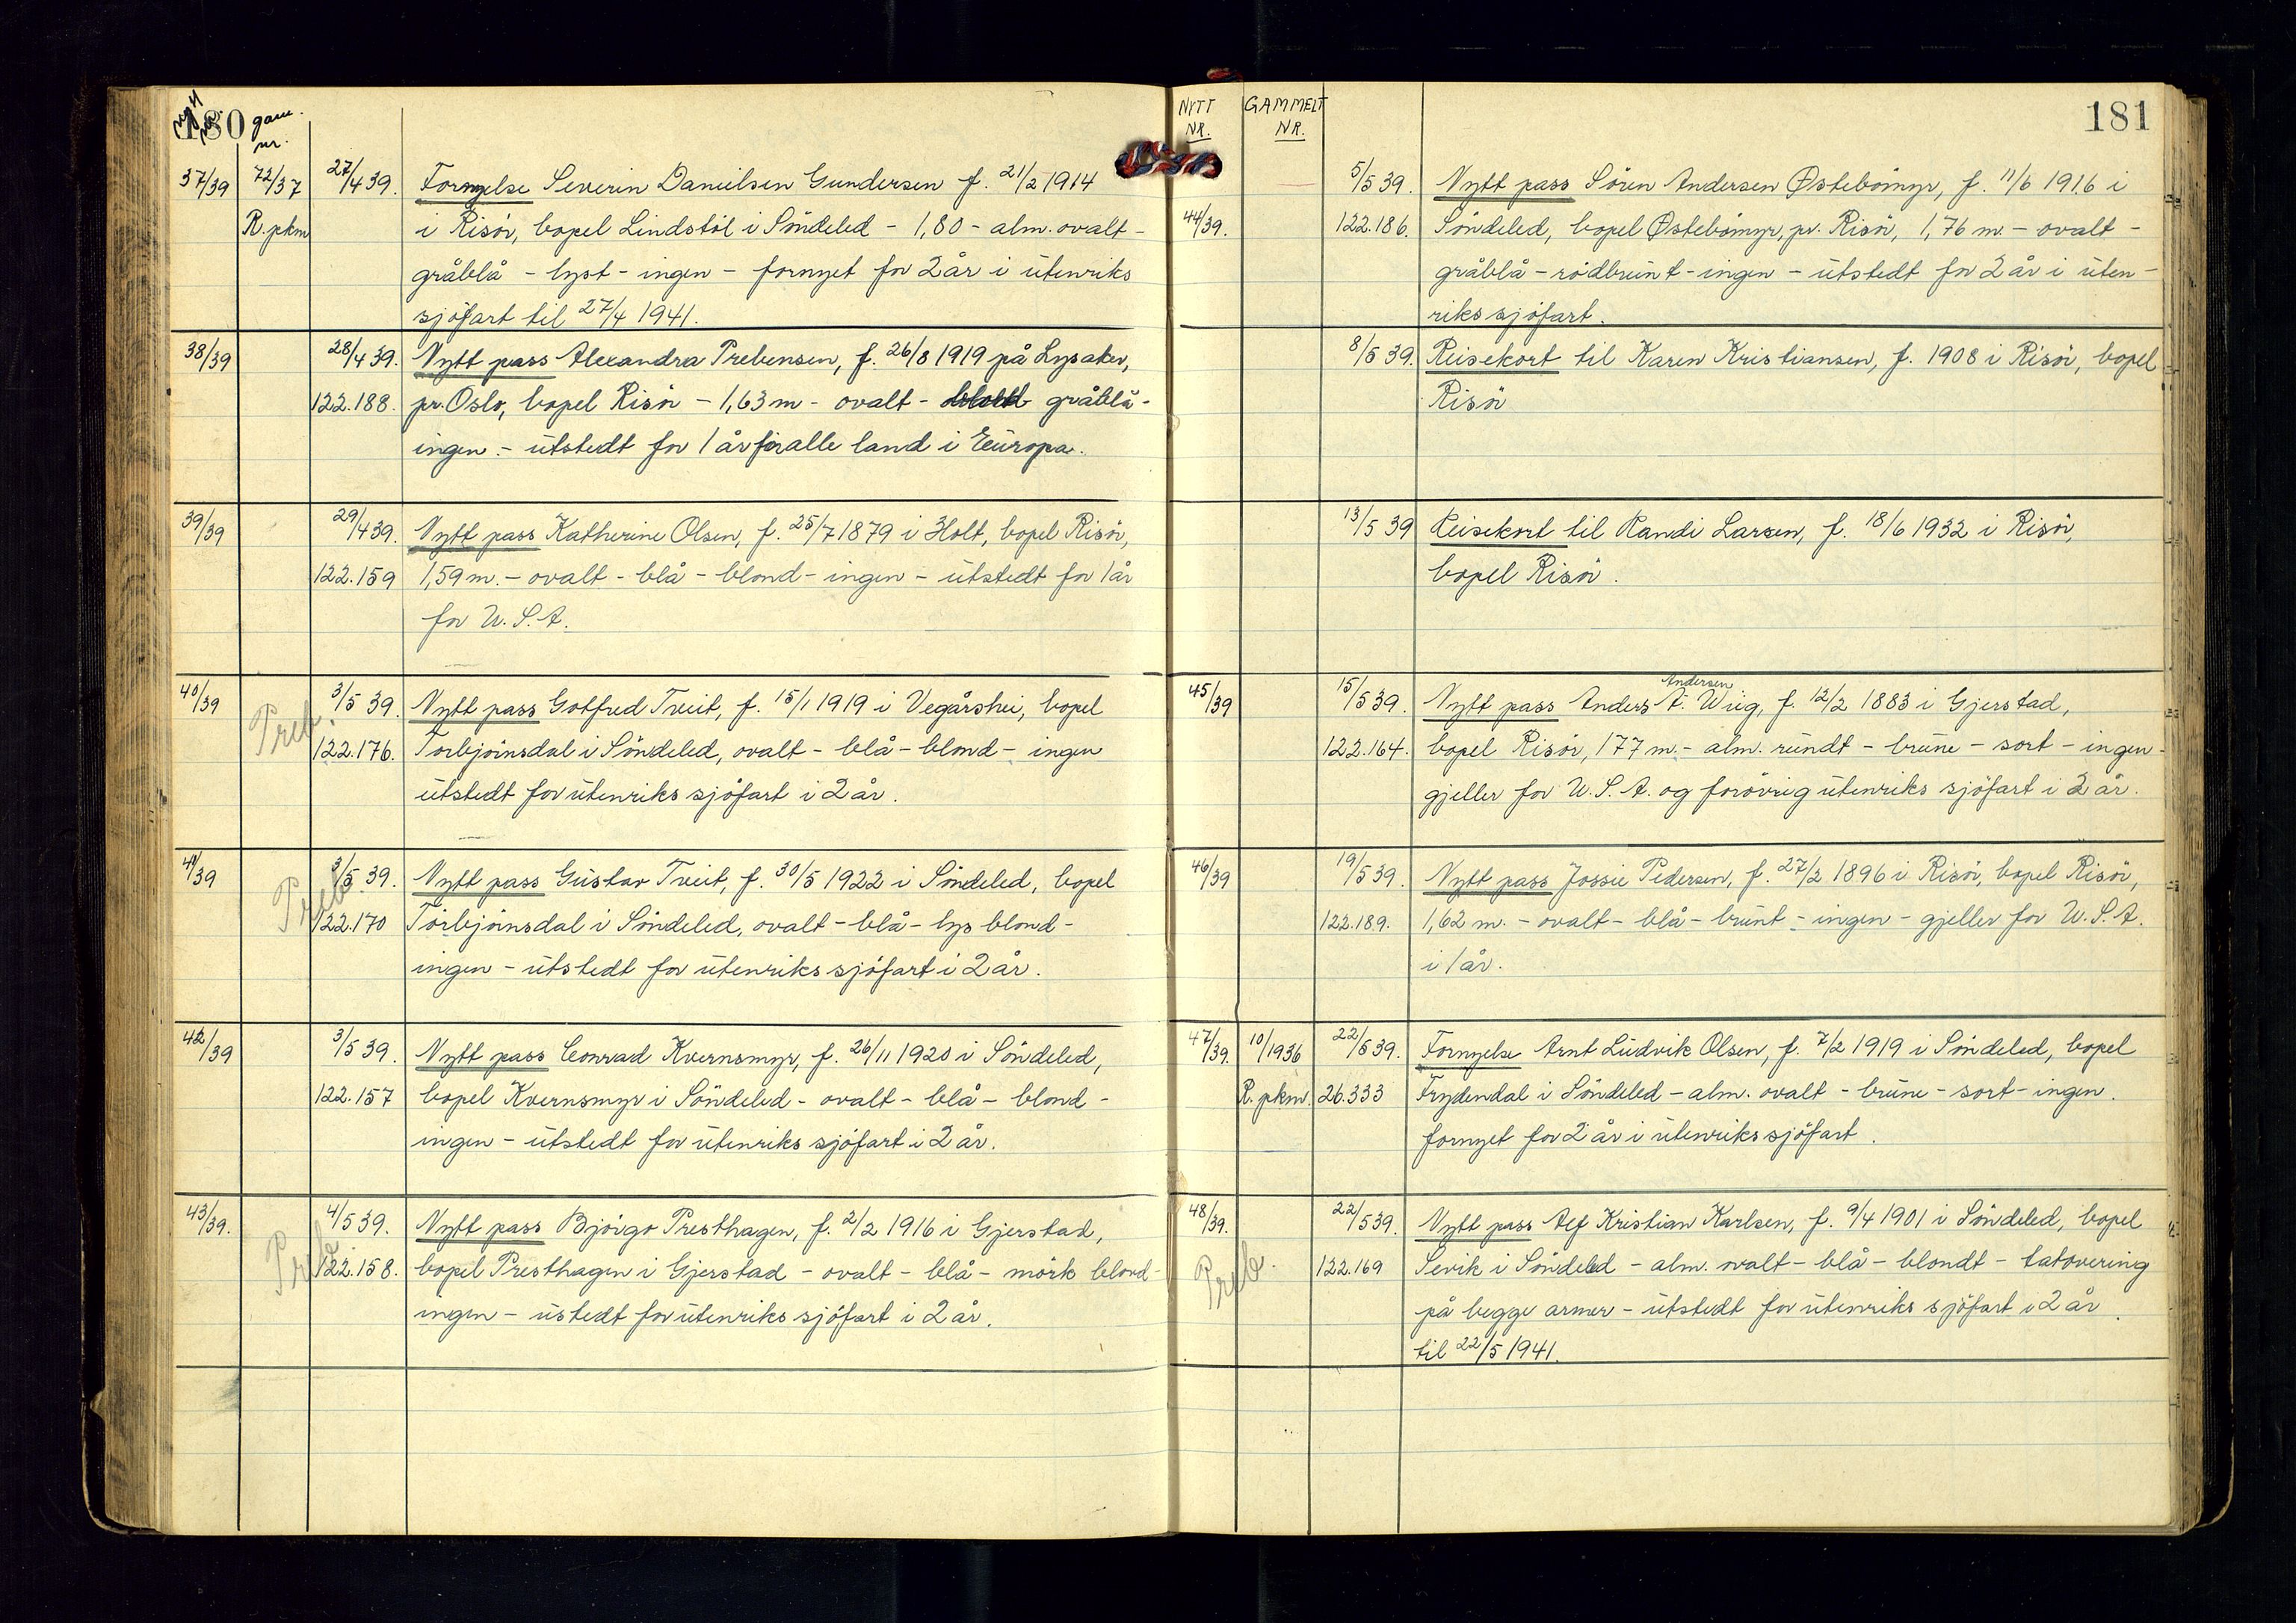 180
nytt nr.
gam. nr.
37/39 72/37 27/4 39. Fornyelse Severin Danielsen Gundersen f. 21/2 1914
R.pkm i Risör, bopel Lindstöl i Söndeled - 1,80 - alm. ovalt -
gråblå - lyst - ingen - fornyet for 2 år i utenriks
sjöfart til 27/4 1941.
38/39 28/4 39. Nytt pass Alexandra Prebensen, f. 26/8 1919 på Lysaker,
122.188. pr. Oslo, bopel Risör - 1,63 m - ovalt - gråblå -
ingen - utstedt for 1 år for alle land i Europa.
39/39 29/4 39. Nytt pass Katherine Olsen, f. 25/7 1879 i Holt, bopel Risör,
122.159 1,59 m. - ovalt - blå - blond - ingen - utstedt for 1 år
for U.S.A.
40/39 Preb. 3/5 39. Nytt pass Gotfred Treit, f. 15/1 1919 i Vegårshei, bopel
122.176. Torbjörnsdal i Söndeled, ovalt - blå - blond - ingen
utstedt for utenriks sjöfart i 2 år.
41/39 Preb. 3/5 39. Nytt pass Gustav Treit, f. 30/5 1922 i Söndeled, bopel
122.170 Torbjörnsdal i Söndeled, ovalt - blå - lys blond -
ingen - utstedt for utenriks sjöfart i 2 år.
42/39 3/5 39. Nytt pass Conrad Kvernsmyr, f. 26/11 1920 i Söndeled,
122.157 bopel Kvernsmyr i Söndeled - ovalt - blå - blond -
ingen - utstedt for utenriks sjöfart i 2 år.
43/39. Preb. 4/5 39. Nytt pass Björgo Presthagen, f. 2/2 1916 i Gjerstad,
122.158. bopel Presthagen i Gjerstad - ovalt - blå - mörk blond -
ingen - ustedt for utenriks sjöfart i 2 år.
181
NYTT NR. GAMMELT NR.
5/5 39. Nytt pass Sören Andersen Østebömyr, f. 11/6 1916 i
44/39. 122.186. Söndeled, bopel Østebömyr, pr. Risör, 1,76 m - ovalt -
gråblå - rödbrunt - ingen - utstedt for 2 år i uten-
riks sjöfart.
8/5 39. Reisekort til Karen Kristiansen, f. 1908 i Risör, bopel
Risör
13/5 39 Reisekort til Randi Larsen, f. 18/6 1932 i Risör,
bopel Risör.
Andersen
45/39 15/5 39. Nytt pass Anders A. Wiig, f. 12/2 1883 i Gjerstad,
122.164. bopel Risör, 177 m. - alm. rundt - brune - sort - ingen -
gjeller for U.S.A. og forövrig utenriks sjöfart i 2 år.
46/39 19/5 39. Nytt pass Jossie Pedersen, f. 27/2 1896 i Risör, bopel Risör,
122.189. 1,62 m. - ovalt - blå - brunt - ingen - gjeller for U.S.A.
i 1 år.
47/39. 10/1936 22/5 39. Fornyelse Arnt Ludvik Olsen, f. 7/2 1919 i Söndeled, bopel
R. pkm. 26.333 Frydendal i Söndeled - alm. ovalt - brune - sort - ingen.
fornyet for 2 år i utenriks sjöfart.
48/39. 22/5 39. Nytt pass Alf Kristian Karlsen, f. 9/4 1901 i Söndeled, bopel
Preb. 122.169 Sevik i Söndeled - alm. ovalt - blå - blondt - tatovering
på begge armer - utstedt for utenriks sjöfart i 2 år
til 22/5 1941.